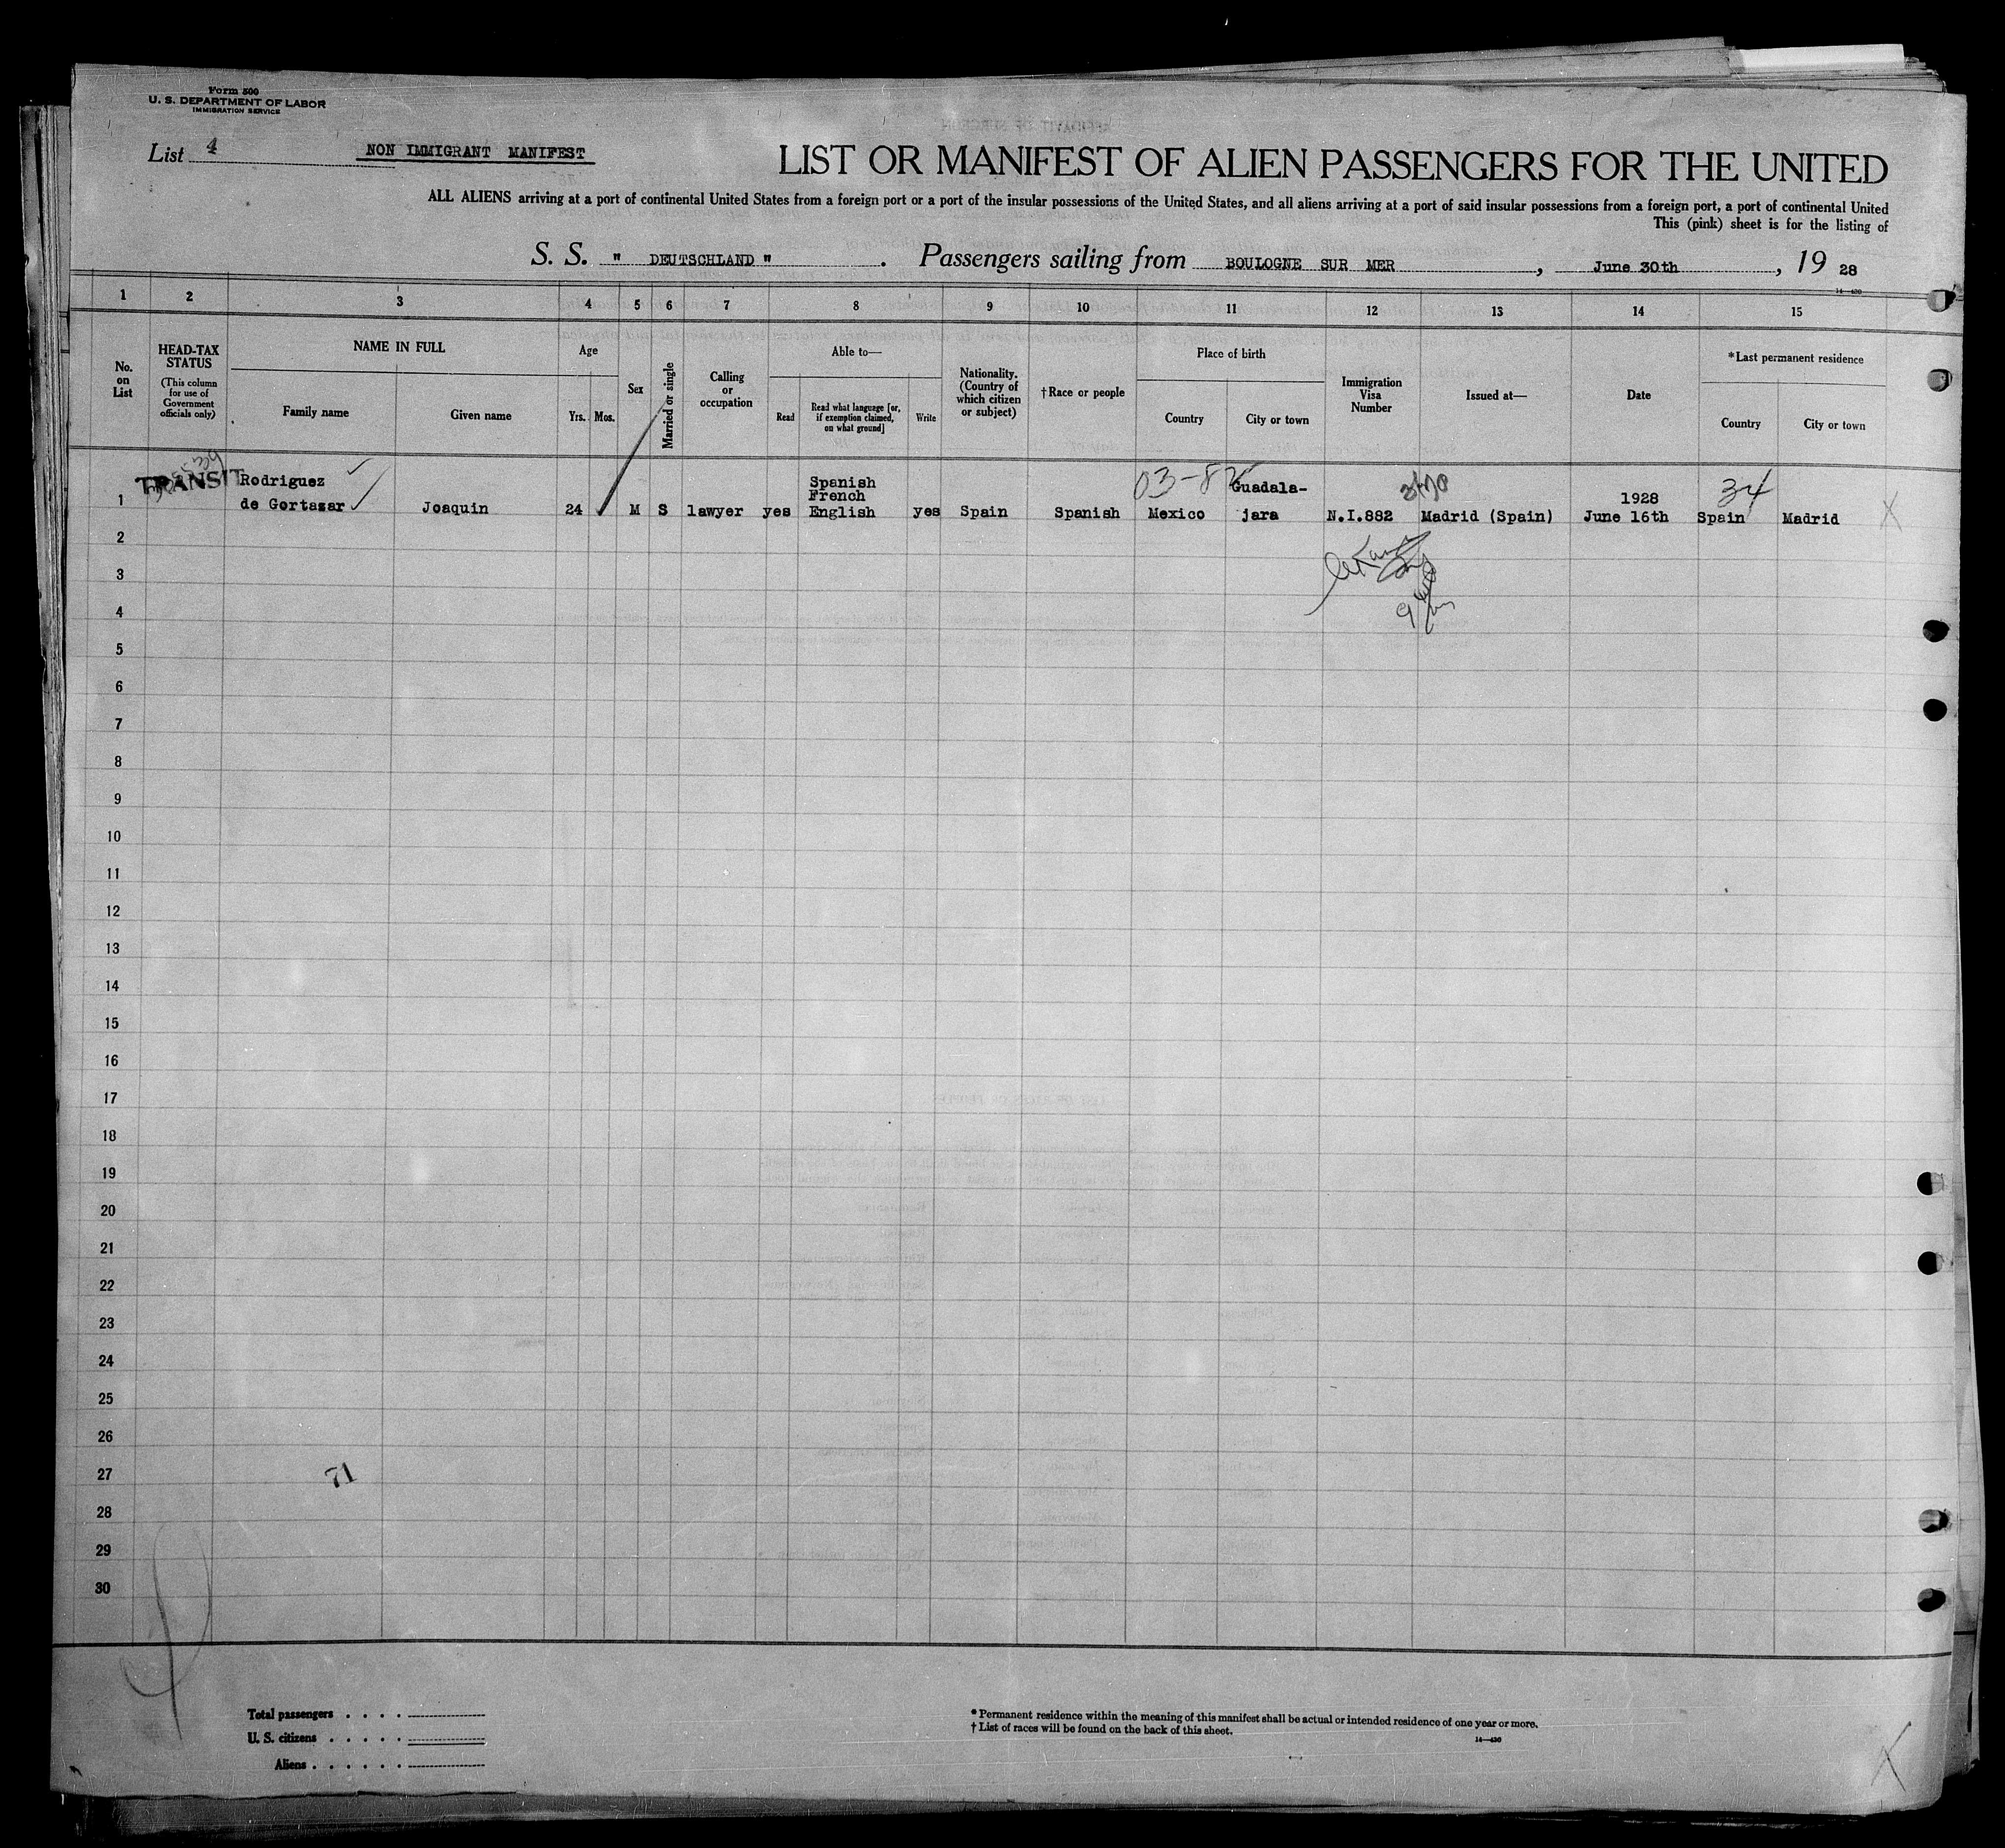 Form 500
U. S. DEPARTMENT OF LABOR
IMMIGRATION SERVICE
List 4
NON IMMIGRANT MANIFEST
LIST OR MANIFEST OF ALIEN PASSENGERS FOR THE UNITED
ALL ALIENS arriving at a port of continental United States from a foreign port or a port of the insular possessions of the United States, and all aliens arriving at a port of said insular possessions from a foreign port, a port of continental United
This (pink) sheet is for the listing of
S. S. " DEUTSCHLAND " . Passengers sailing from BOULOGNE SUR MER , June 30th , 19 28
14—430
1 2 3 4 5 6 7 8 9 10 11 12 13 14 15
No. on List
HEAD-TAX STATUS
(This column for use of Government officials only)
NAME IN FULL
Family name
Given name
Age
Yrs. Mos.
Sex
Married or single
Calling or occupation
Able to—
Read
Read what language [or, if exemption claimed, on what ground]
Write
Nationality. (Country of which citizen or subject)
†Race or people
Place of birth
Country
City or town
Immigration Visa Number
Issued at—
Date
*Last permanent residence
Country
City or town
TRANSIT
1 Rodriguez de Gortazar Joaquin 24 M S lawyer yes Spanish French English yes Spain Spanish Mexico Guadala-jara N.I.882 Madrid (Spain) 1928 June 16th Spain Madrid X
03-82
34
2
3
4
5
6
7
8
9
10
11
12
13
14
15
16
17
18
19
20
21
22
23
24
25
26
27
71
28
29
30
Total passengers . . . .
U. S. citizens . . . . .
Aliens . . . . . .
* Permanent residence within the meaning of this manifest shall be actual or intended residence of one year or more.
† List of races will be found on the back of this sheet.
14—430
X